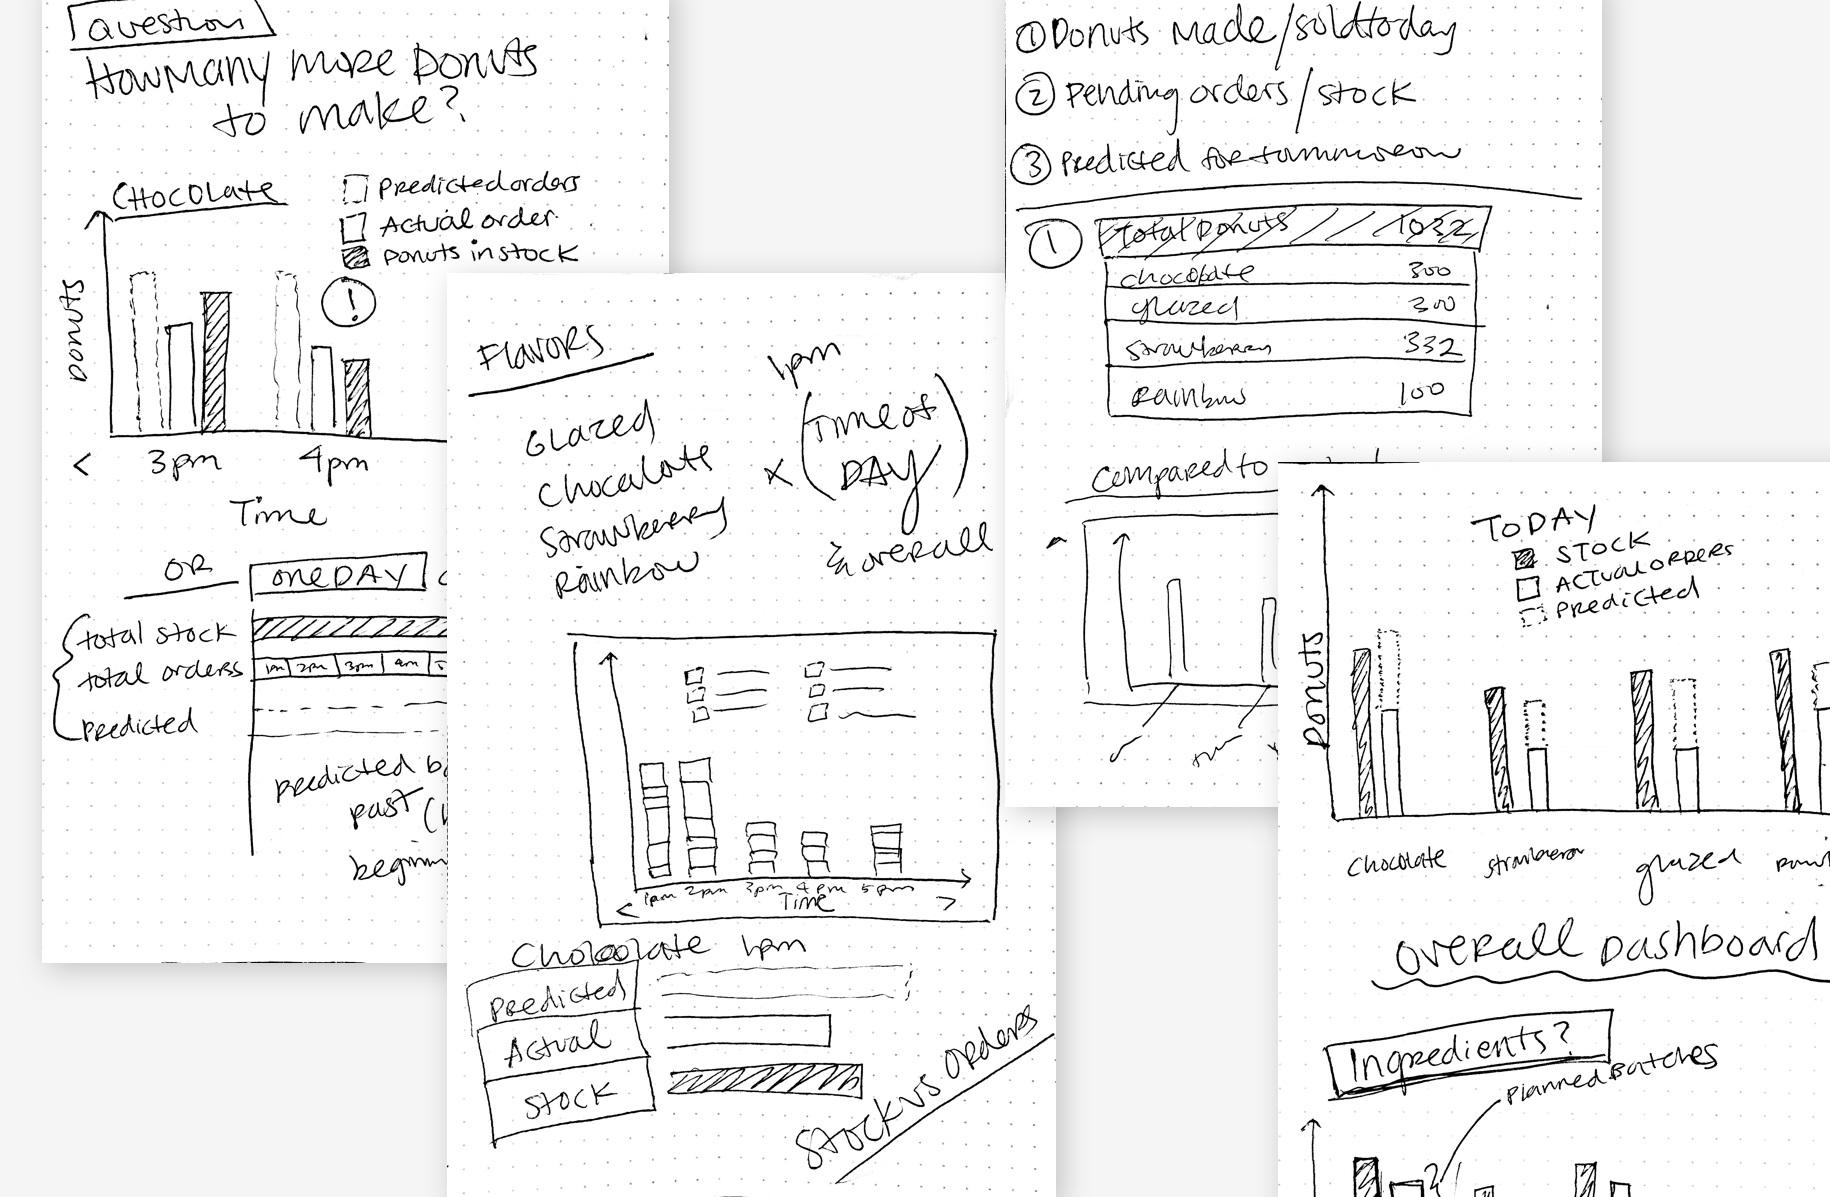 Question
How many more Donuts
to make?
CHOCOLATE
Predicted orders
Actual order
Donuts in stock
!
Donuts
< 3pm 4pm
Time
OR
one DAY
total stock
total orders
1pm 2pm 3pm 4pm 5
Predicted
predicted b
past (
beginnin
FLAVORS
Glazed
Chocolate
Strawberry
Rainbow
1pm
x (Time of
DAY)
& overall
1pm 2pm 3pm 4pm 5pm
< Time >
Chocolate 1pm
Predicted
Actual
Stock
Stock vs Orders
① Donuts made/sold today
② Pending orders/stock
③ Predicted for tommorow
① Total Donuts 1032
chocolate 300
glazed 300
strawberry 332
Rainbow 100
Compared to
TODAY
STOCK
ACTUAL ORDERS
Predicted
Donuts
Chocolate strawberry glazed
Overall Dashboard
Ingredients?
Planned Batches